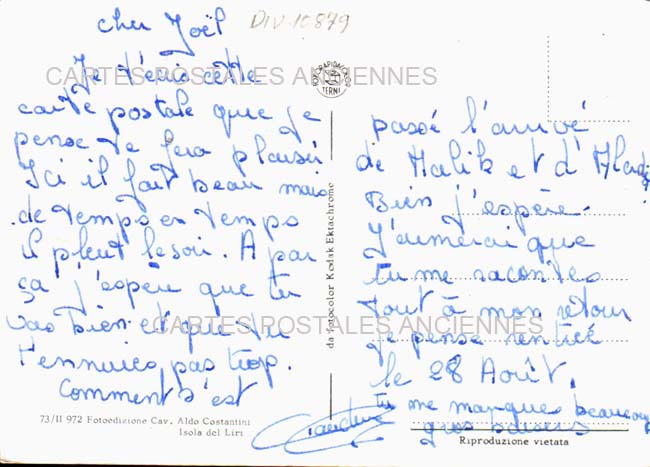 cher Joël
DIV 10879
Je t'écris cette
carte postale que je
pense te fera plaisir
Ici il fait beau mais
de temps en temps
il pleut le soir. A par
ça j'espère que tu
vas bien et que tu
t'ennuies pas trop.
Comment s'est
passé l'arrivé
de Malik et d'
Bien j'espère.
J'aimerai que
tu me racontes
tout à mon retour
Je pense rentrée
le 28 Août.
tu me manques beaucoup
gros baisers
CARTES POSTALES ANCIENNES
CARTES POSTALES ANCIENNES
TERNI
da fotocolor Kodak Ektachrome
73/II 972 Fotoedizione Cav. Aldo Costantini
Isola del Liri
Riproduzione vietata